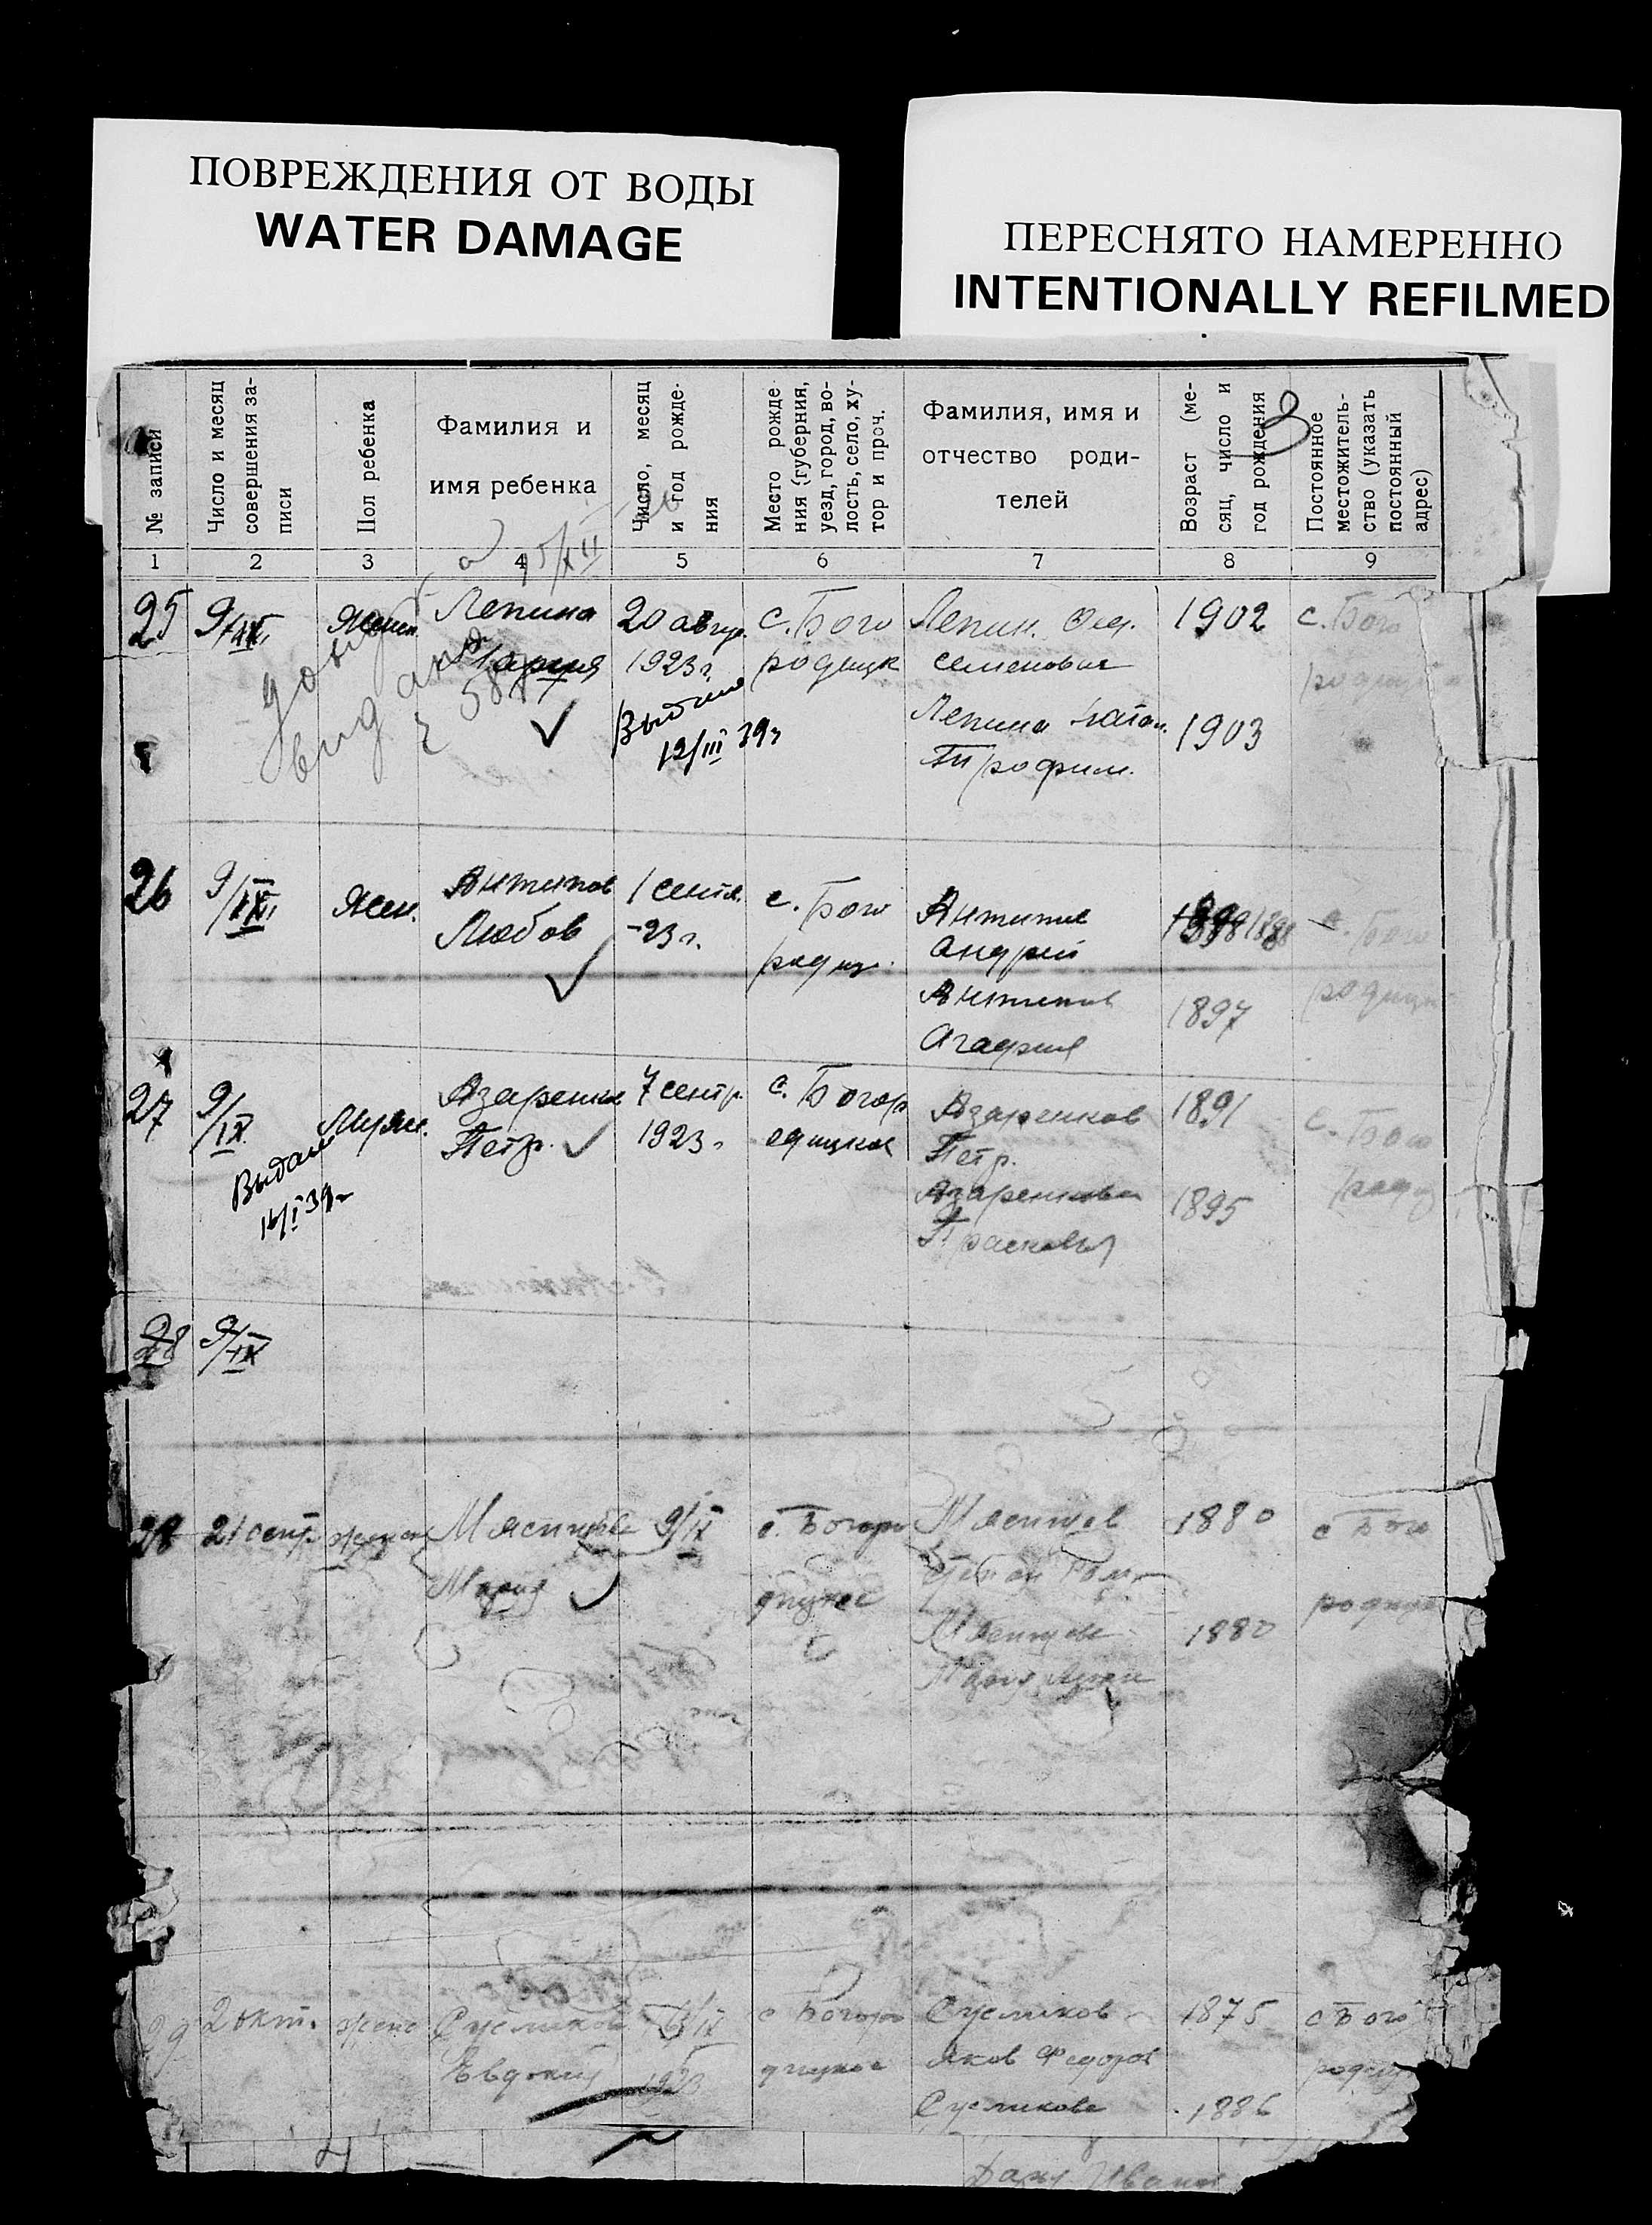 ПОВРЕЖДЕНИЯ ОТ ВОДЫ
WATER DAMAGE
ПЕРЕСНЯТО НАМЕРЕННО
INTENTIONALLY REFILMED
№ записи
Число и месяц
совершения за-
писи
Пол ребенка
Фамилия и
имя ребенка
Число, месяц
и год рожде-
ния
Место рожде
ния (губерния,
уезд, город, во-
лость, село, ху-
тор и проч.
Фамилия, имя и
отчество роди-
телей
Возраст (ме-
сяц, число и
год рождения
Постоянное
местожитель-
ство (указать
постоянный
адрес)
1 2 3 4 5 6 7 8 9
15/XII
25
9/IX
Женск.
Лепина
Мария
20 авгус.
1923 г.
Выдано
12/III 39 г
с. Бого
родицк
Лепин Фед.
Семенович
Лепина Натал.
Трофим.
1902
1903
с. Бого
родицк
26
9/IX
Жен.
Антипов
Любов
1 сентя.
-23 г.
с. Бого
родиц.
Антипов
Андрей
Антипов
Агафия
1898
1897
с. Бого
родицк
27
9/IX
Выдано
16/I 39 г
Муж.
Азаренков
Петр.
7 сентр.
1923 г
с. Богор
одицкое
Азаренков
Петр.
Азаренкова
Прасковья
1891
1895
с. Бого
родиц
28 9/IX
28
21 сент
женск
Мясищева
Мария
9/IX
с. Богоро
дицкое
Мясищев
Степан Ром.
Мясищева
Мария
1880
1880
с Бого
родицк
29
2 окт.
женс
Сусликова
Евдокия
/IX
1923
с Богоро
дицкое
Сусликов
Яков Федоров
Сусликова
Дарья Иванов
1875
1886
с Бого
родиц